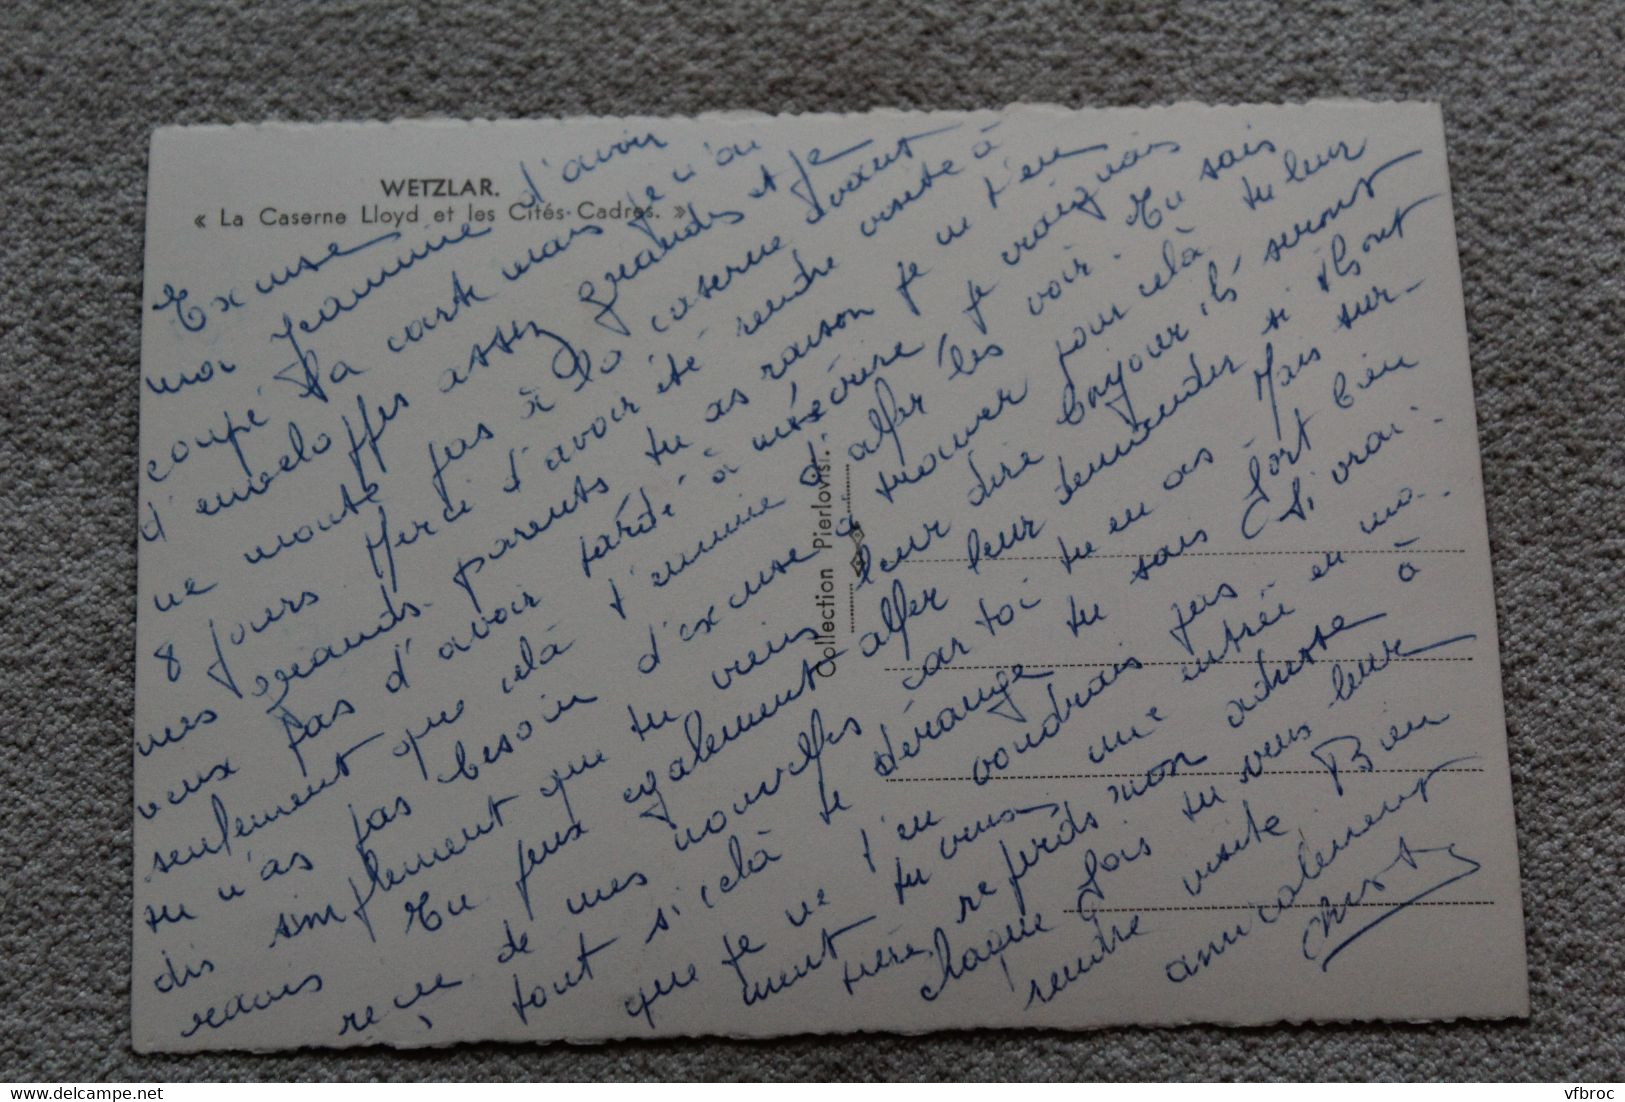 WETZLAR.
« La Caserne Lloyd et les Cités-Cadres. »
Collection Pierlovisi.
Excuse
moi Jeannine d'avoir
coupé ta carte mais je n'ai
d'enveloppes assez grandes et je
ne monte pas à la caserne avant
8 jours Merci d'avoir été rendre visite à
mes grands-parents tu as raison je ne t'en
veux pas d'avoir tardé à m'écrire, je craignais
seulement que celà t'ennuie d'aller les voir. Tu sais
tu n'as pas besoin d'excuse à trouver pour celà tu leur
dis simplement que tu viens leur dire bonjour ils seront
ravis Tu peux également aller leur demander si ils ont
reçu de mes nouvelles car toi tu en as. Mais sur-
tout si celà te dérange tu sais fort bien
que je ne t'en voudrais pas Si vrai-
ment tu veux une entrée en ma-
tière, mon adresse à
chaque fois tu veux leur
rendre visite Bien
amicalement